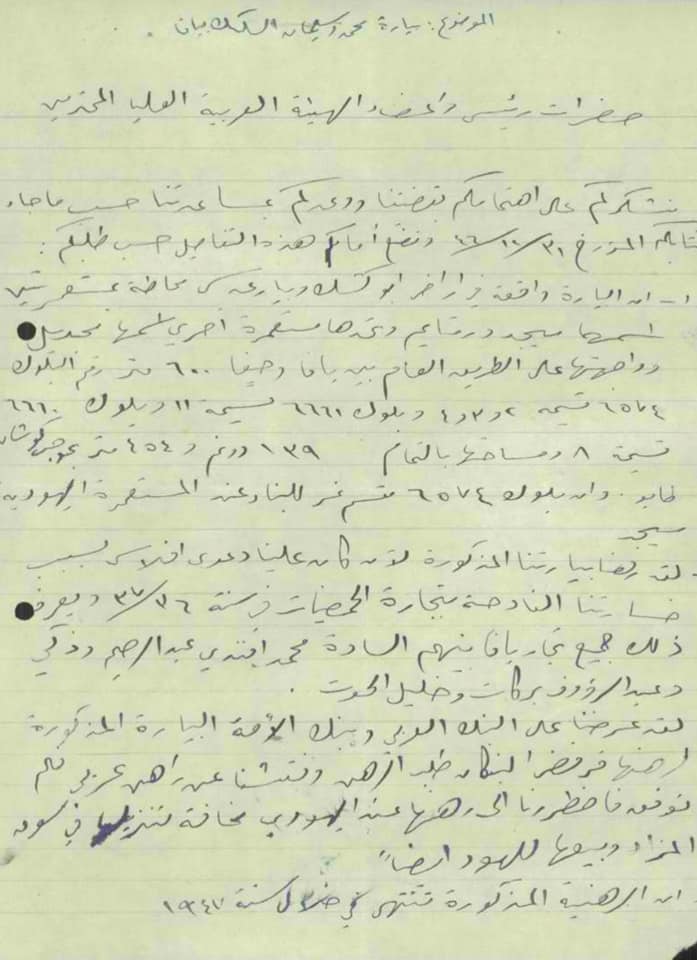 الموضوع: بيارة محمد وسليمان السكسك بيافا .
حضرات رئيس واعضاء الهيئة العربية العليا المحترمين
نشكركم على اهتمامكم بقضيتنا ووعدكم بمساعدتنا حسب ما جاء
بكتابكم المؤرخ ٣١/١٢/٤٦ ونضع أمامكم هذه التفاصيل حسب طلبكم :
١- ان البيارة واقعة في اراضي ابو كشك وبيار عدس محاطة بمستعمرتين
اسمهما ميجد ورمتايم وتحدها مستعمرة أخرى اسمها مجديل
وواجهتها على الطريق العام بين يافا وحيفا ٦٠٠ متر رقم البلوك
٦٥٧٤ قسيمة ٢ و٣ و٤ وبلوك ٦٦٦١ قسيمة ١١ وبلوك ٦٦٦٠
قسيمة ٨ ومساحتها بالتمام ١٣٩ دونم و ٤٥٤ متر بموجب كوشان
طابو . وان بلوك ٦٥٧٤ مقسم نمر للبناء عند المستعمرة اليهودية
ميجد
لقد رهنا بيارتنا المذكورة لأن كان علينا دعوى افلاس بسبب
خسارتنا الفادحة بتجارة الحمضيات في سنة ٣٦/٣٧ ويعرف
ذلك جميع تجار يافا منهم السادة محمد افندي عبد الرحيم وزكي
وعبد الرؤوف بركات وخليل الحوت .
لقد عرضنا على البنك العربي وبنك الأمة البيارة المذكورة
لرهنها فرفض البنكان طلب الرهن وفتشنا عن راهن عربي فلم
نوفق فاضطررنا الى رهنها عند اليهودي مخافة تنزيلها في سوق
المزاد وبيعها لليهود ايضاً
ان الرهنية المذكورة تنتهي في خلال سنة ١٩٤٧